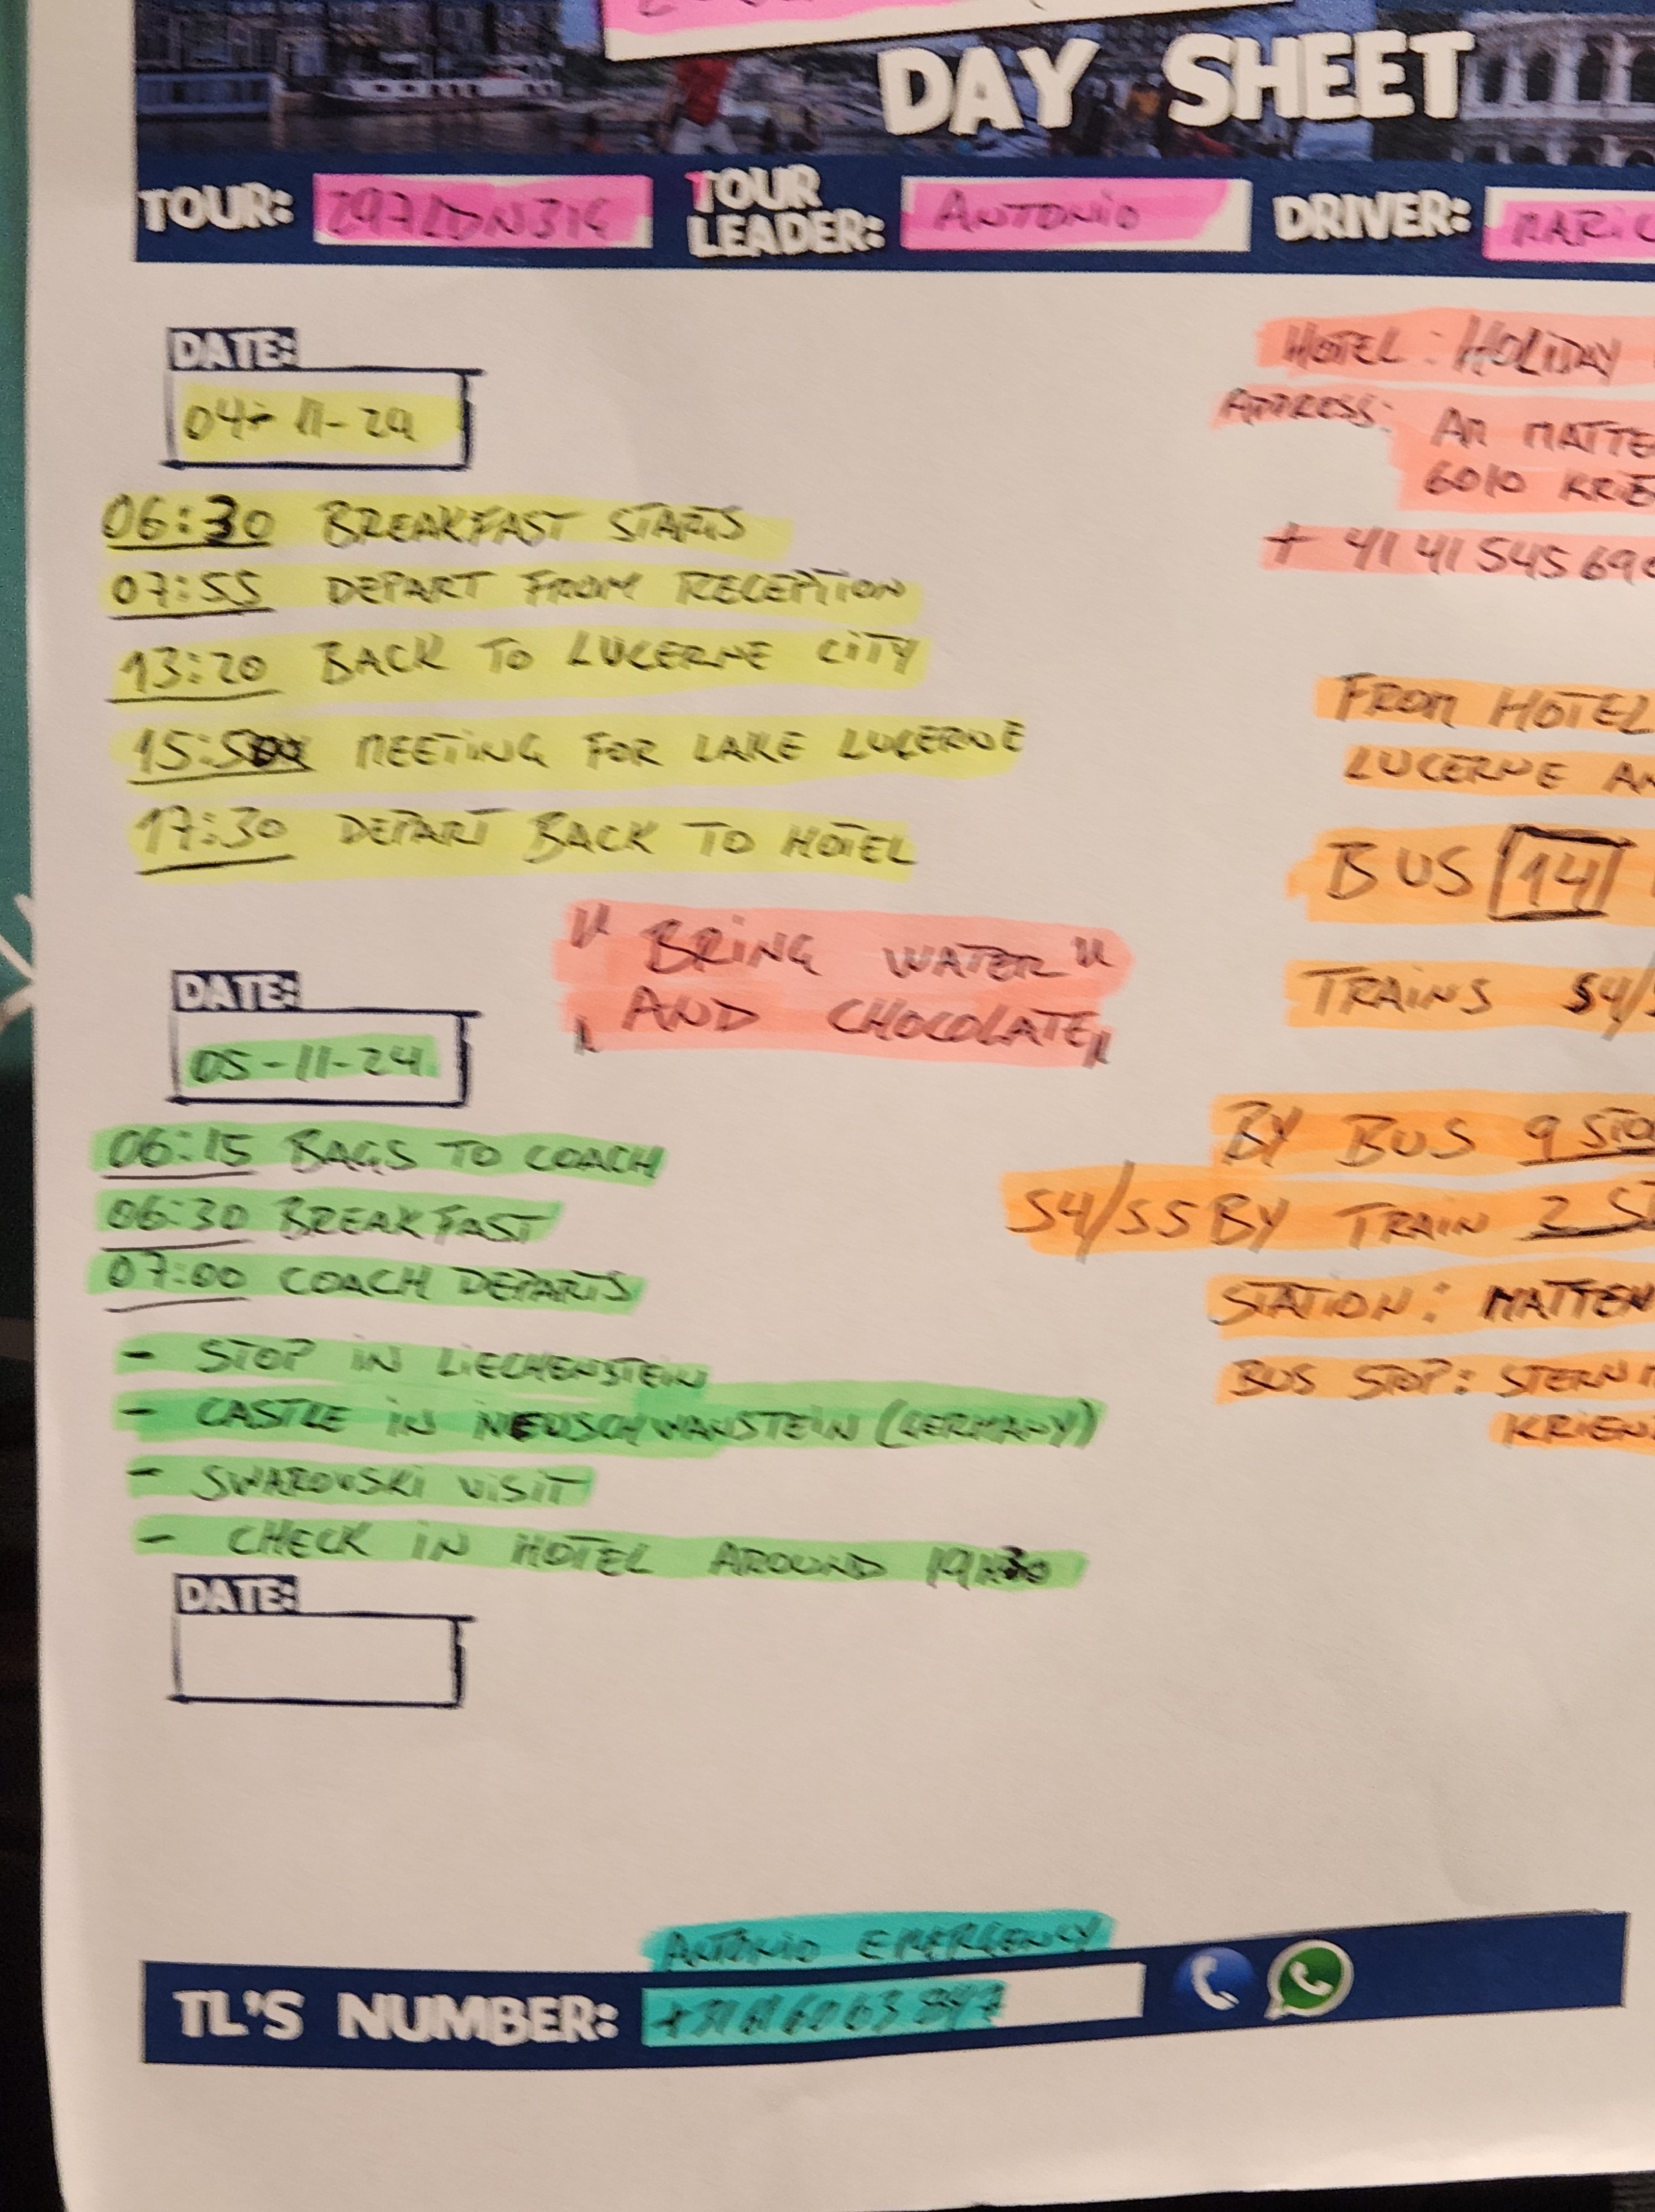 DAY SHEET
TOUR:
TOUR LEADER: ANTONIO
DRIVER:
DATE:
04-11-24
06:30 BREAKFAST STARTS
07:55 DEPART FROM RECEPTION
13:20 BACK TO LUCERNE CITY
15:50 MEETING FOR LAKE LUCERNE
17:30 DEPART BACK TO HOTEL
"BRING WATER"
„AND CHOCOLATE„
DATE:
05-11-24
06:15 BAGS TO COACH
06:30 BREAKFAST
07:00 COACH DEPARTS
- STOP IN LIECHENSTEIN
- CASTLE IN NEUSCHWANSTEIN (GERMANY)
- SWAROVSKI VISIT
- CHECK IN HOTEL AROUND 19:30
DATE:
HOTEL: HOLIDAY
ADDRESS: AM
6010
+41 41 545
FROM HOTEL
LUCERNE
BUS 14
TRAINS S4/
BY BUS 9
S4/S5 BY TRAIN 2
STATION:
BUS STOP:
ANTONIO EMERGENCY
TL'S NUMBER: